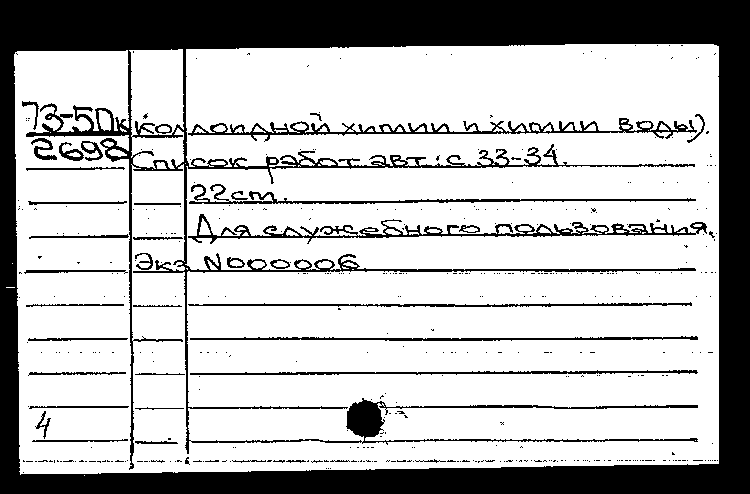 73-5Пк коллоидной химии и химии воды).
2698 Список работ авт.: с. 33-34.
22см.
Для служебного пользования.
Экз N000006
4